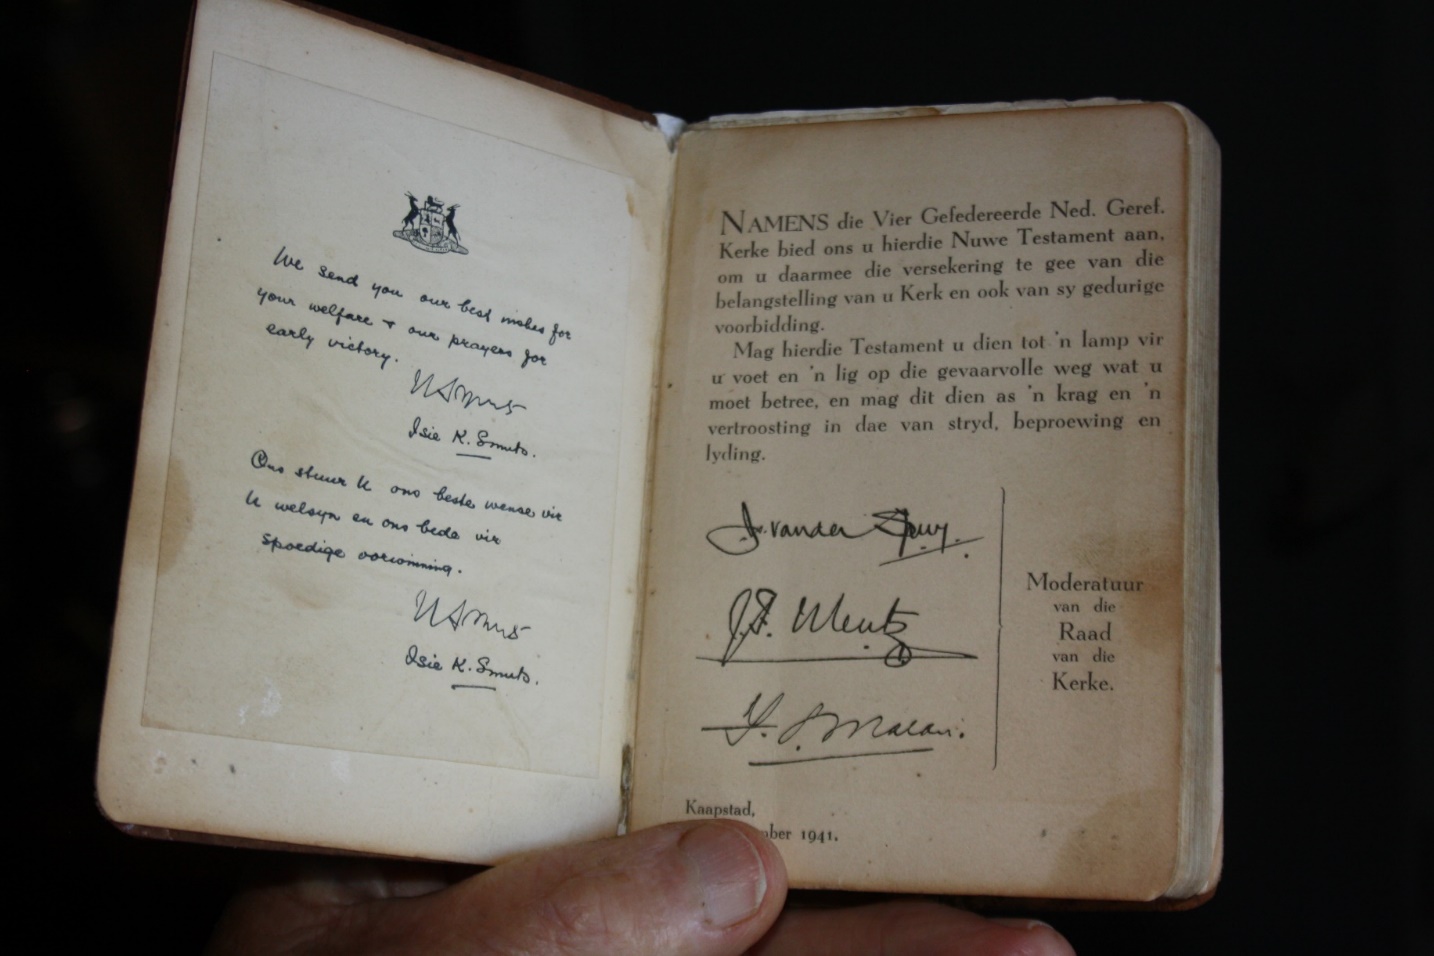 We send you our best wishes for
your welfare + our prayers for
early victory.
Isie K. Smuts.
Ons stuur U ons beste wense vir
U welsyn en ons bede vir
spoedige oorwinning.
Isie K. Smuts.
NAMENS die Vier Gefedereerde Ned. Geref.
Kerke bied ons u hierdie Nuwe Testament aan,
om u daarmee die versekering te gee van die
belangstelling van u Kerk en ook van sy gedurige
voorbidding.
Mag hierdie Testament u dien tot 'n lamp vir
u voet en 'n lig op die gevaarvolle weg wat u
moet betree, en mag dit dien as 'n krag en 'n
vertroosting in dae van stryd, beproewing en
lyding.
van der Spuy.
J.F. Mentz
Malan.
Moderatuur
van die
Raad
van die
Kerke.
Kaapstad,
1941.